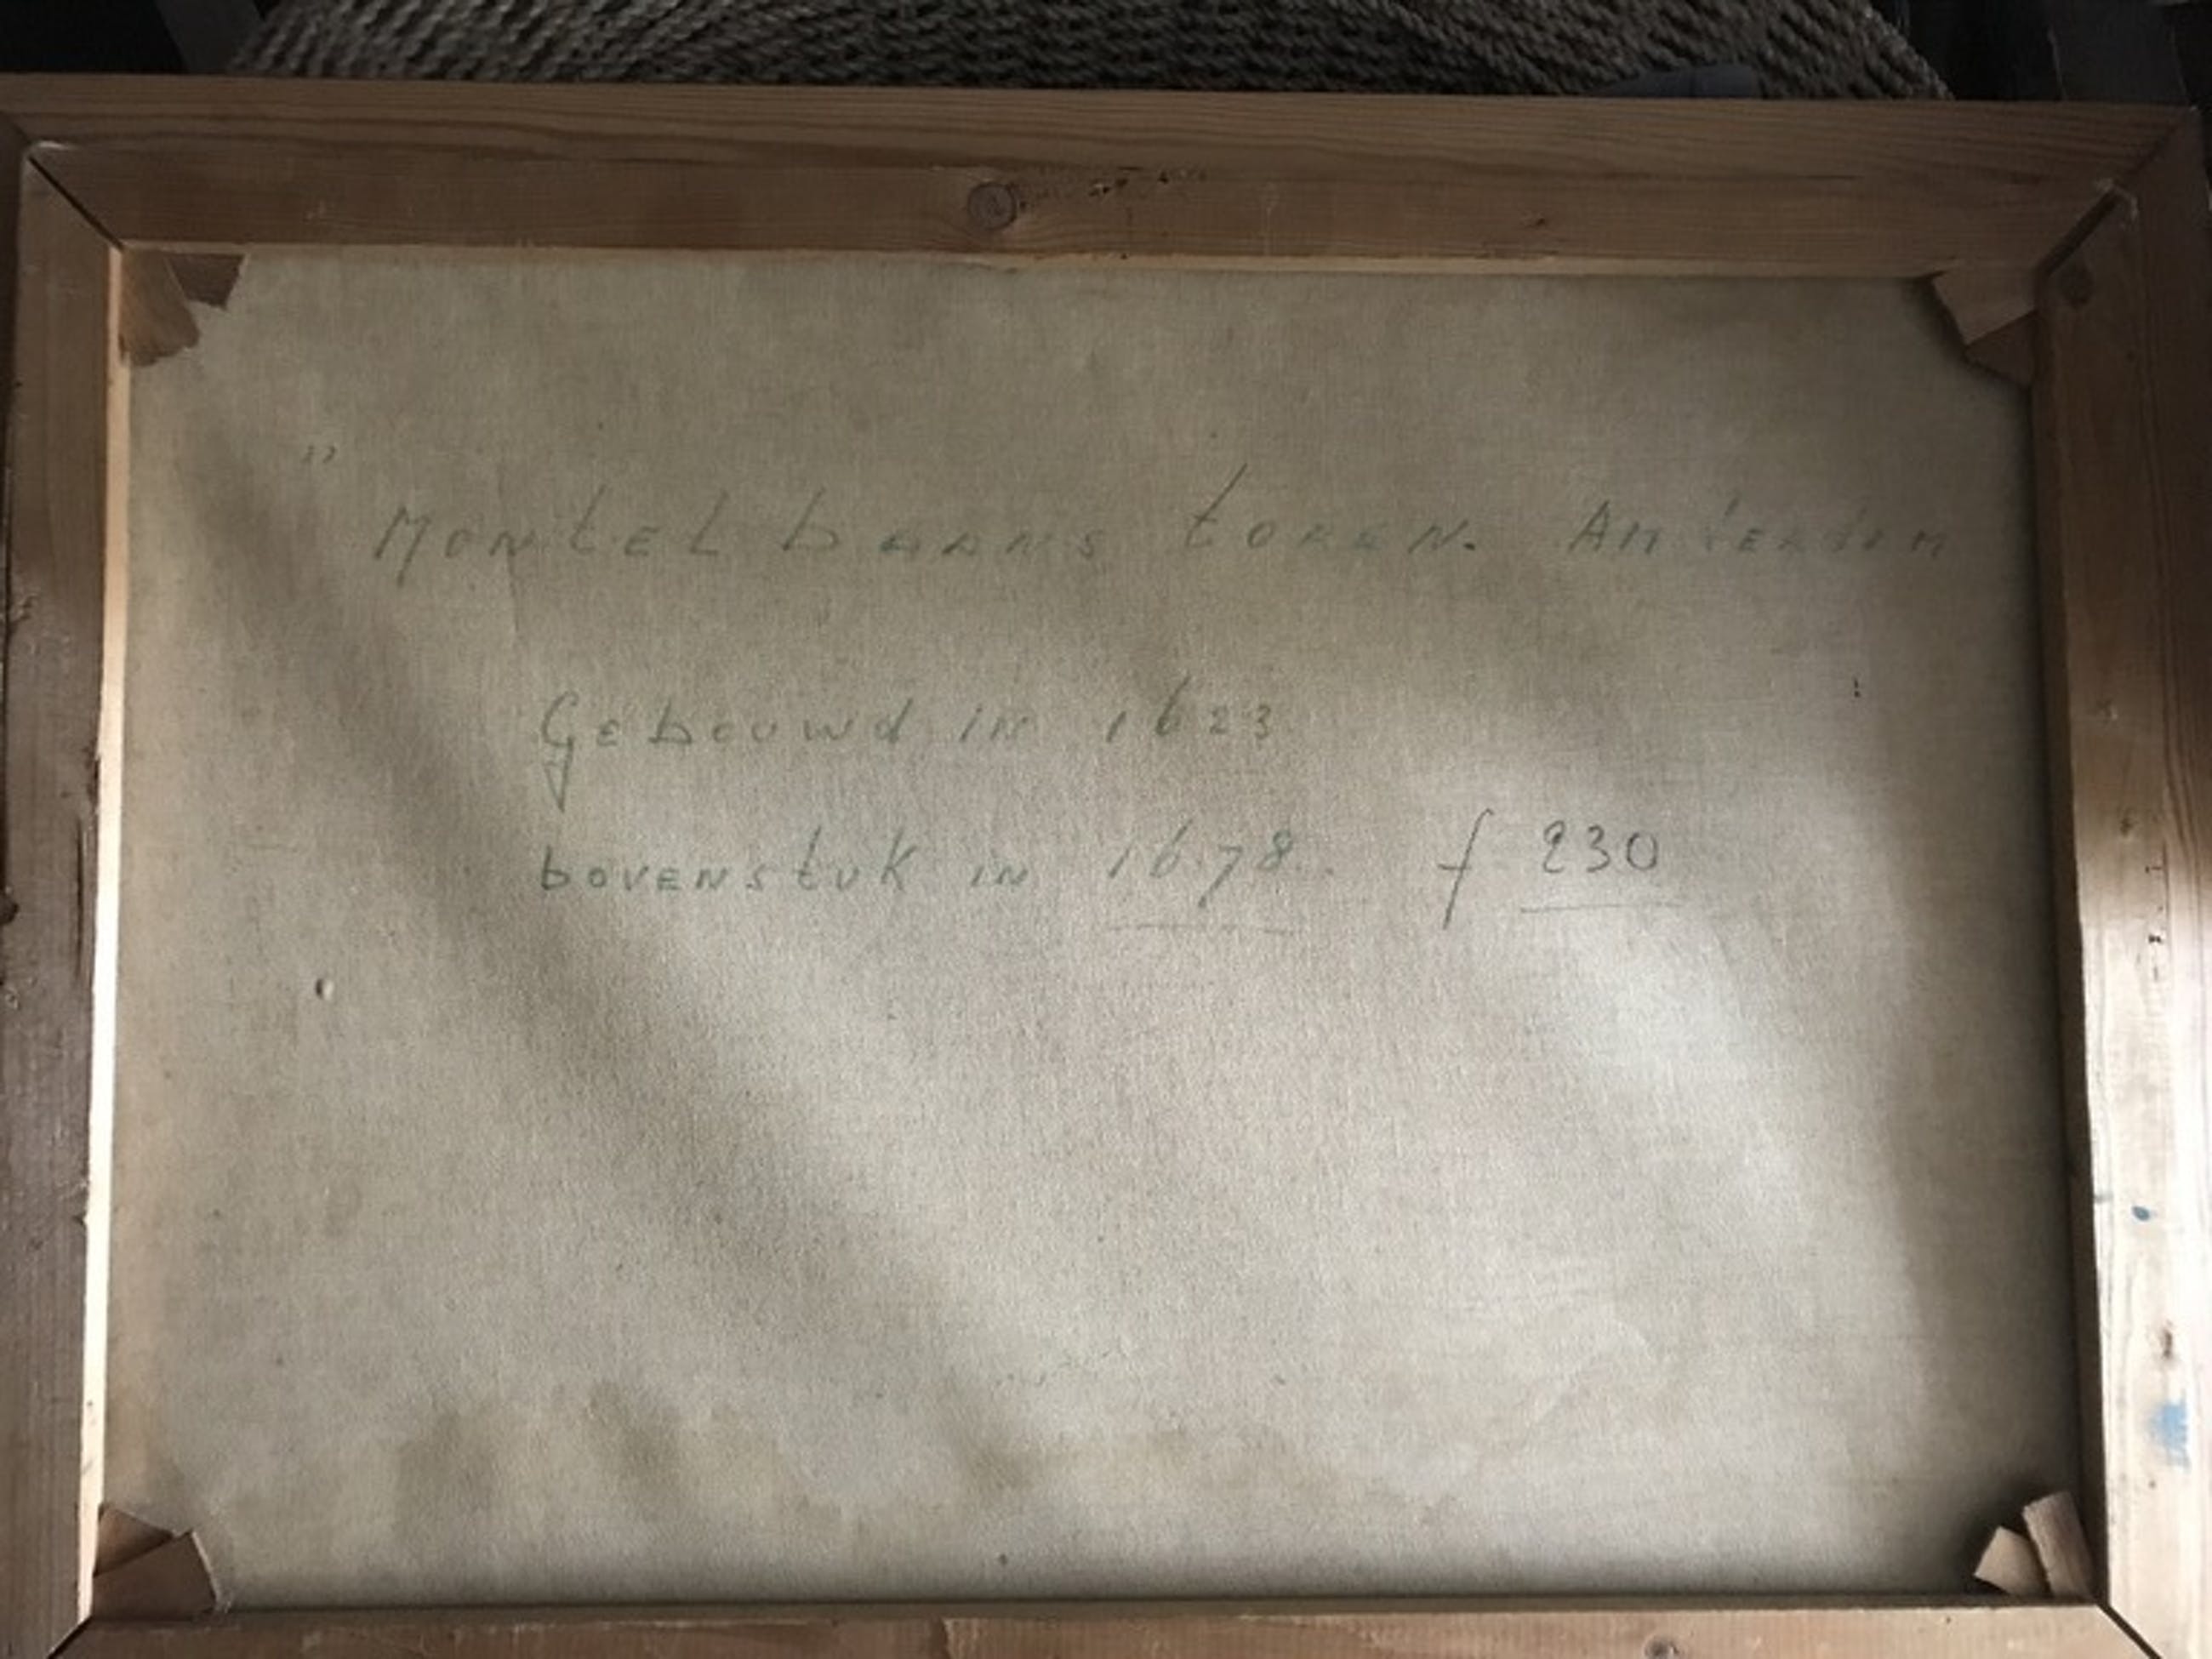 " Montelbaans toren. Amsterdam
Gebouwd in 1623
bovenstuk in 1678. f 230